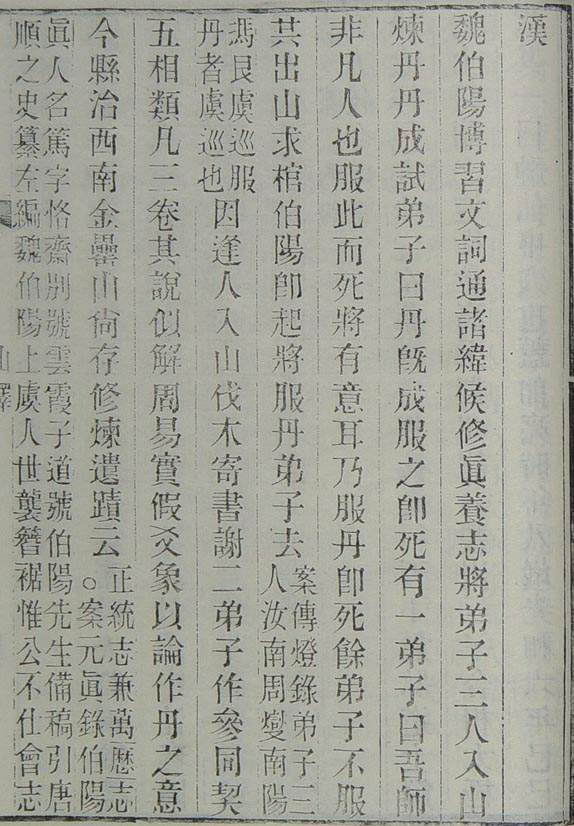 漢
魏伯陽博習文詞通諸緯候修眞養志將弟子三人入山
煉丹丹成試弟子曰丹旣成服之卽死有一弟子曰吾師
非凡人也服此而死將有意耳乃服丹卽死餘弟子不服
共出山求棺伯陽卽起將服丹弟子去案傳燈錄弟子三
人汝南周燮南陽
馮艮虞巡服
丹者虞巡也因逢人入山伐木寄書謝二弟子作參同契
五相類凡三卷其說似解周易實假爻象以論作丹之意
今縣治西南金罍山尙存修煉遺蹟云正統志兼萬歷志
○案元眞錄伯陽
眞人名篤字恪齋別號雲霞子道號伯陽先生備稿引唐
順之史纂左編魏伯陽上虞人世襲簪裾惟公不仕會志